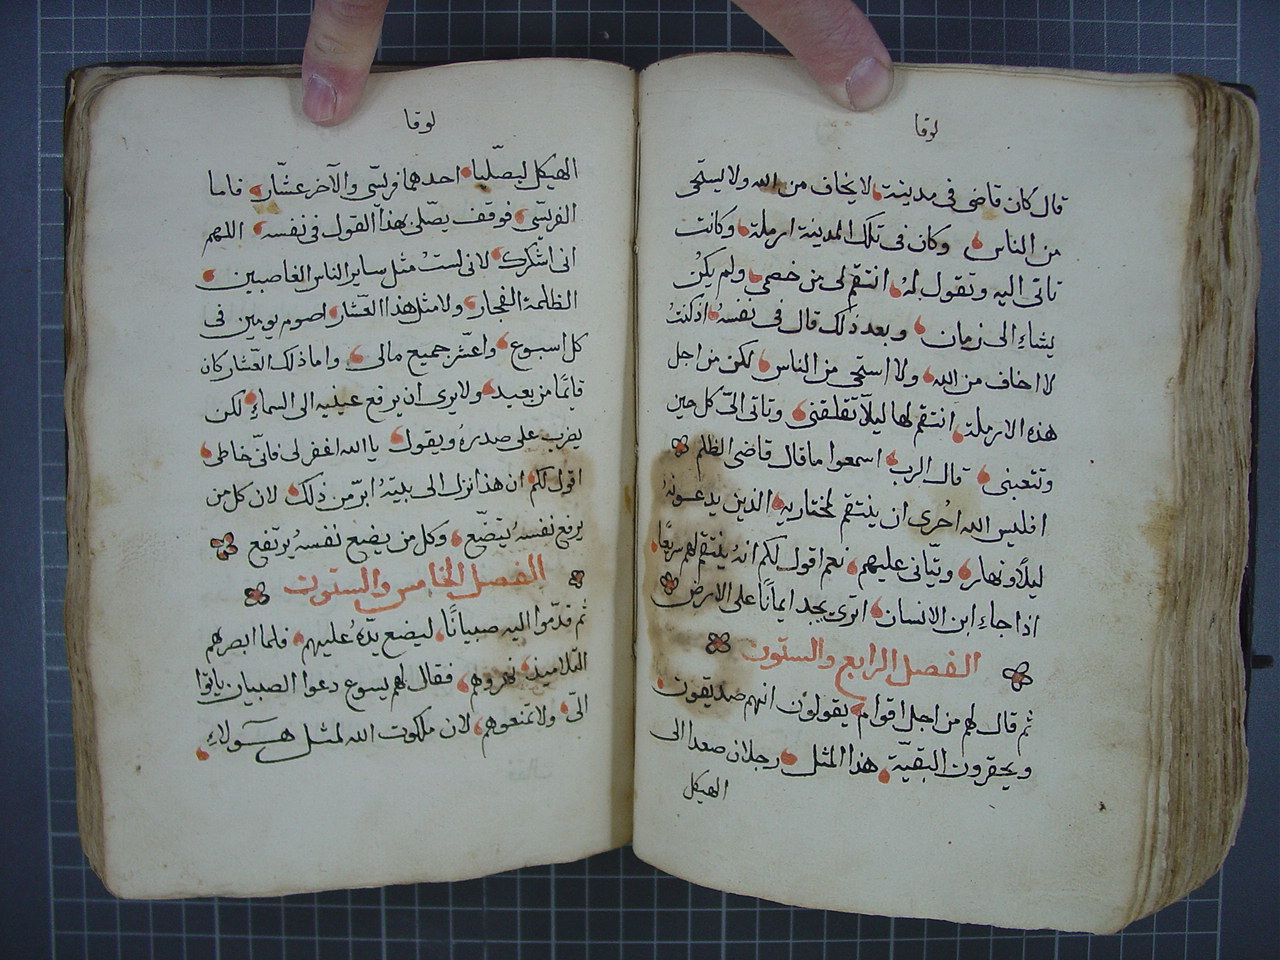 لوقا
قال كان قاضى فى مدينة لا يخاف من الله ولا يستحى
من الناس وكان فى تلك المدينة ارملة وكانت
تاتى اليه وتقول له انتقم لى من خصمى ولم يكن
يشاء الى زمان وبعد ذلك قال فى نفسه اذ كنت
لا اخاف من الله ولا استحى من الناس لكن من اجل
هذه الارملة انتقم لها ليلا تقلقنى وتاتى الىّ كل حين
وتتعبنى قال الرب اسمعوا ما قال قاضى الظلم
افليس الله احرى ان ينتقم لمختاريه الذين يدعونه
ليلًا ونهارا ويتّانى عليهم نعم اقول لكم انه ينتقم لهم سريعًا
اذا جاء ابن الانسان اترى يجد ايمانًا على الارض
الفصل الرابع والستون
ثم قال لهم من اجل اقوام يقولون انهم صديقون
ويحقرون البقيّة هذا المثل رجلان صعدا الى
الهيكل
لوقا
الهيكل ليصلّيا احدهما فريسّى والآخر عشّار فاما
الفريسّى فوقف يصلّى بهذا القول فى نفسه اللهم
انى اشكرك لانى لستُ مثل ساير الناس الغاصبين
الظلمة الفجار ولا مثل هذا العشّار اصوم يومين فى
كل اسبوع واعشّر جميع مالى واما ذلك العشّار كان
قايمًا من بعيد ولا يرى ان يرفع عينيه الى السماء لكن
يضرب على صدره ويقول يا الله اغفر لى فانّى خاطى
اقول لكم ان هذا نزل الى بيته ابرّ من ذلك لان كل من
يرفع نفسه يتضّع وكل من يضع نفسه يرتفع
الفصل الخامس والستون
ثم قدّموا اليه صبيانًا ليضع يدّه عليهم فلما ابصرهم
التلاميذ نهروهم فقال لهم يسوع دعوا الصبيان ياتوا
الىّ ولا تمنعوهم لان ملكوت الله لمثل هولاء